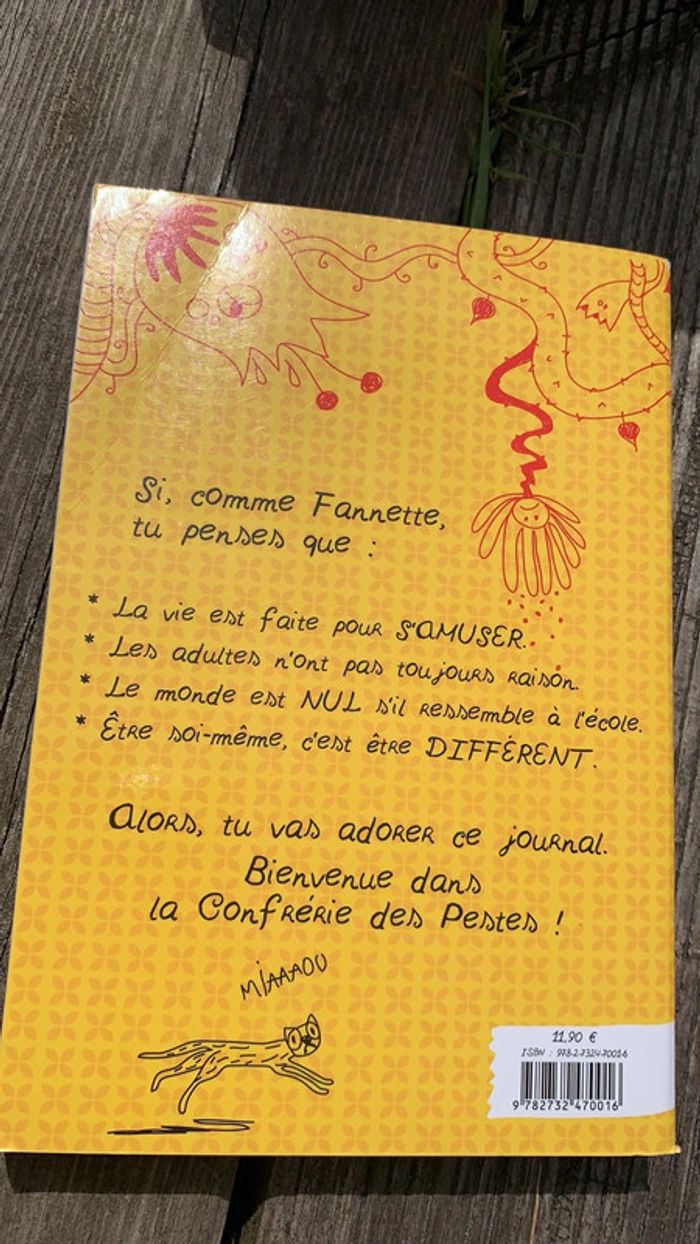 Si, comme Fannette,
tu penses que :
* La vie est faite pour S'AMUSER.
* Les adultes n'ont pas toujours raison.
* Le monde est NUL s'il ressemble à l'école.
* Être soi-même, c'est être DIFFÉRENT.
Alors, tu vas adorer ce journal.
Bienvenue dans
la Confrérie des Pestes !
MIAAAOU
11,90 €
ISBN : 978-2-7324-7001-6
9 782732 470016